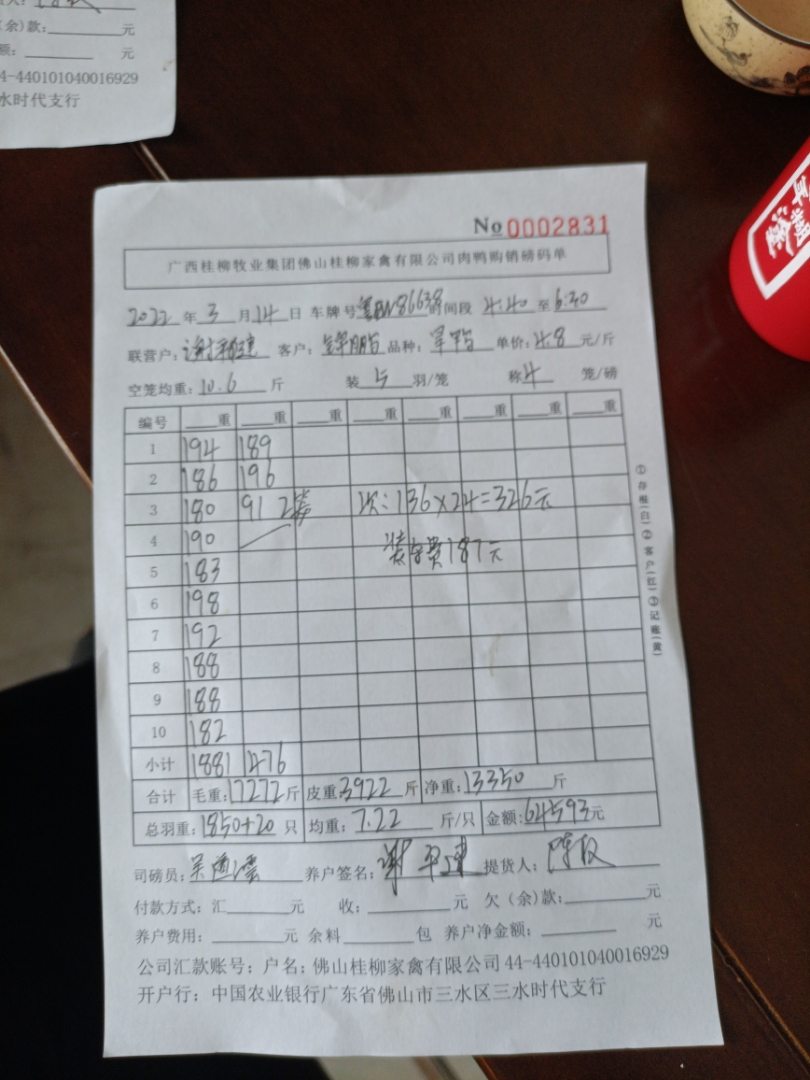 (余)款:________元
额:______ 元
4-440101040016929
水时代支行
No 0002831
广西桂柳牧业集团佛山桂柳家禽有限公司肉鸭购销磅码单
2022 年 3 月 14 日 车牌号 86638 时间段 4:40 至 6:30
联营户: 谢 客户: 鹏 品种: 单价: 4.8 元/斤
空笼均重: 10.6 斤 装 5 羽/笼 称 4 笼/磅
编号 ___重 ___重 ___重 ___重 ___重 ___重 ___重 ___重
1 194 189
2 186 196
3 180 91 2笼 次: 136×24=326元
4 190 装 费187元
5 183
6 198
7 192
8 188
9 188
10 182
小计 1881 476
合计 毛重: 17272 斤 皮重: 3922 斤 净重: 13350 斤
总羽重: 1850+20 只 均重: 7.22 斤/只 金额: 64593 元
司磅员: 养户签名: 谢 提货人: 陈
付款方式: 汇______元 收:________元 欠(余)款:________元
养户费用:______元 余料______包 养户净金额:______ 元
公司汇款账号: 户名: 佛山桂柳家禽有限公司 44-440101040016929
开户行: 中国农业银行广东省佛山市三水区三水时代支行
①存根(白)②客户(红)③记账(黄)